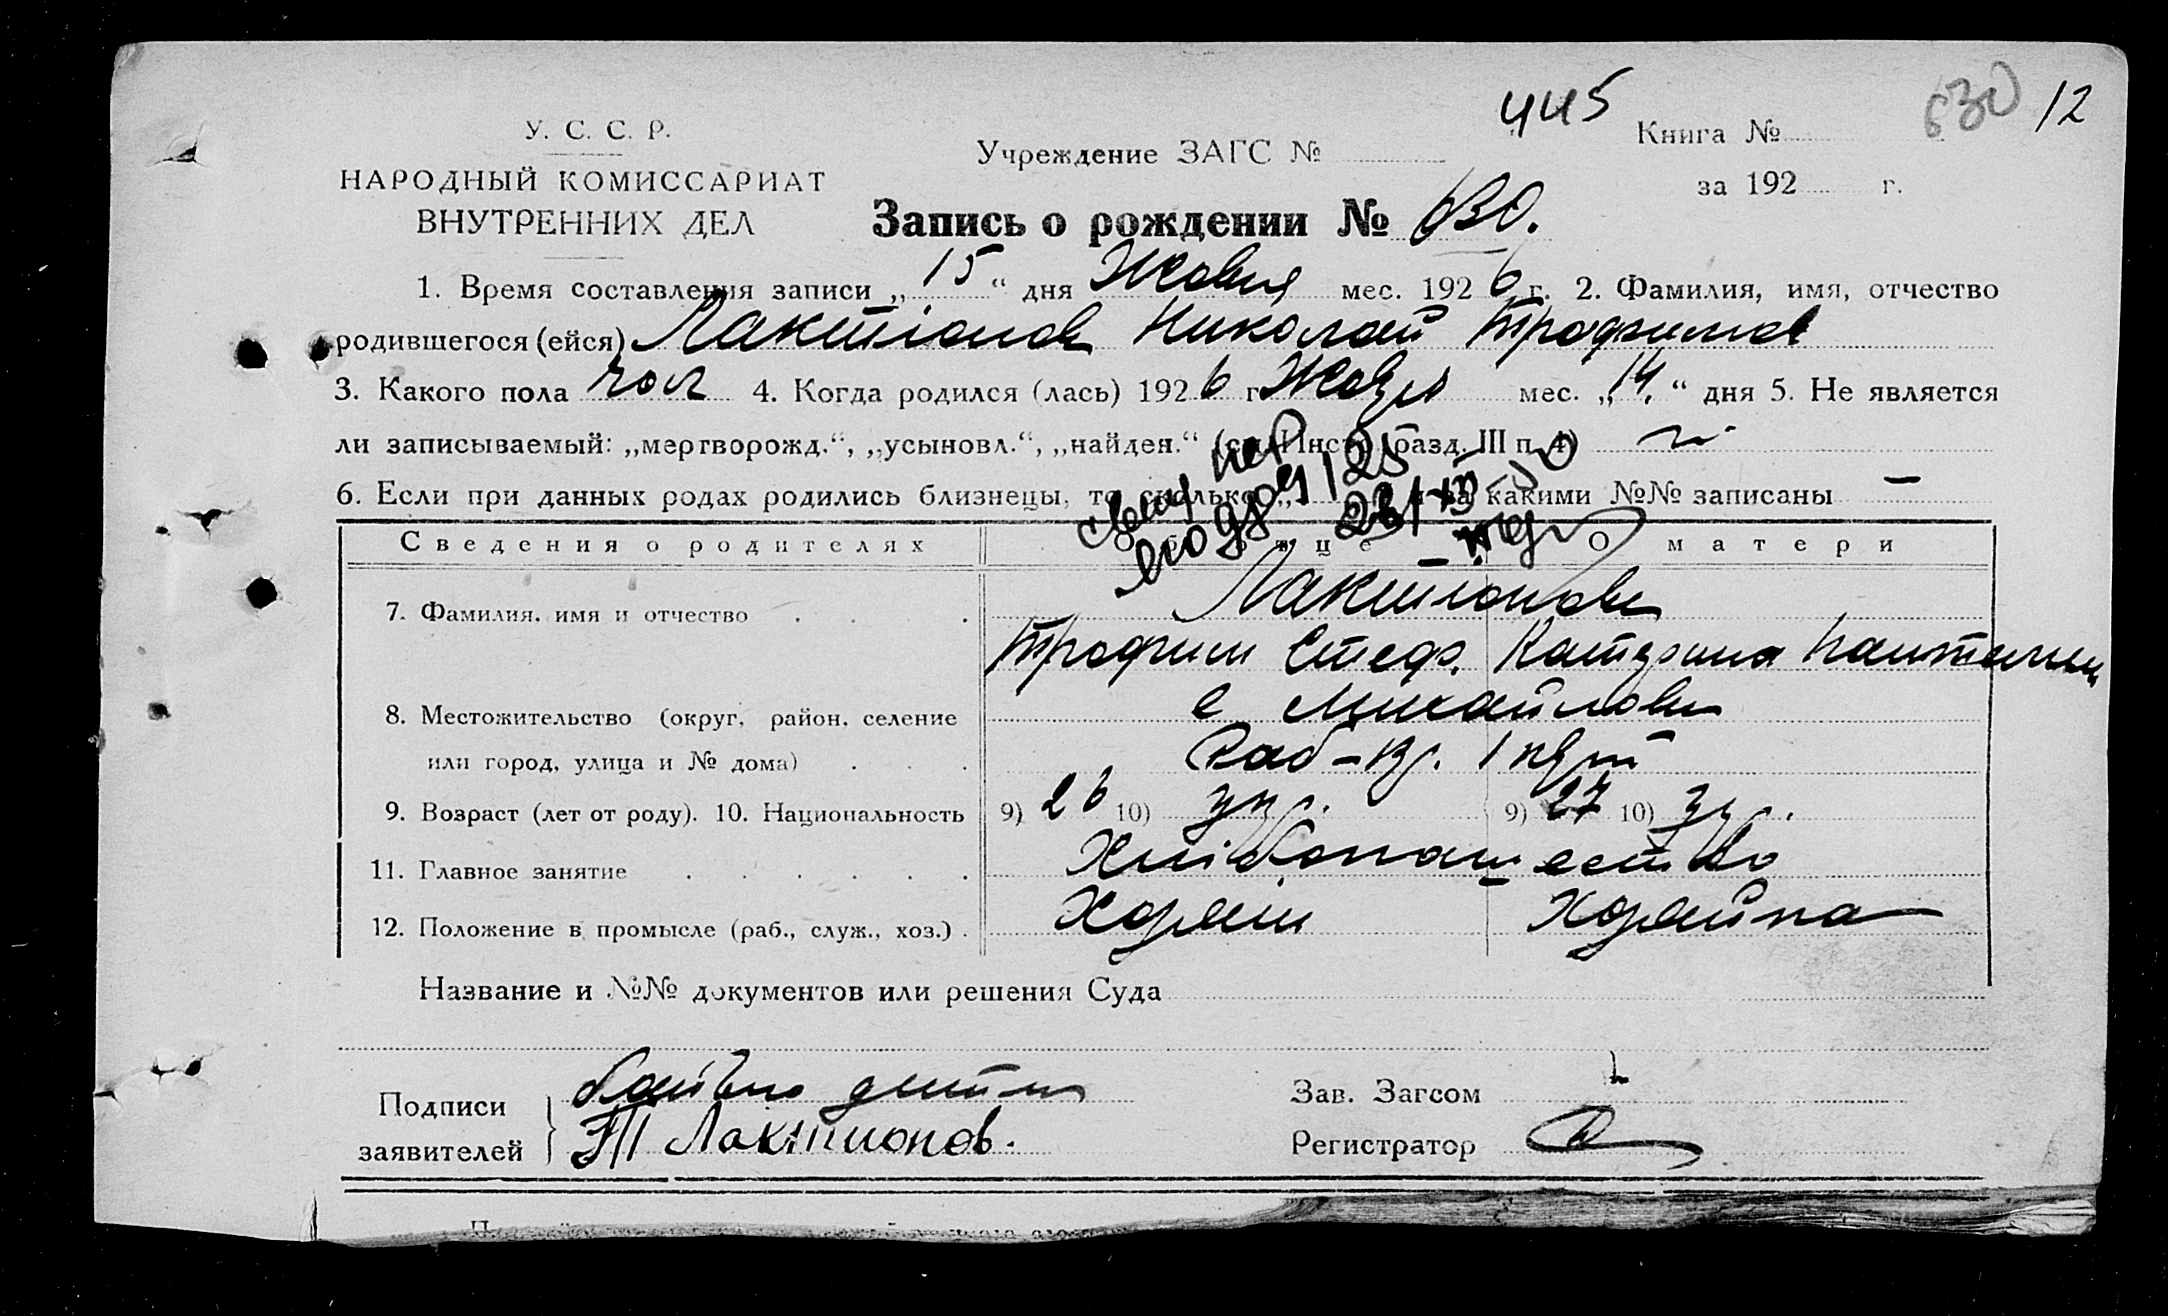 445
630 12
У. С. С. Р.
НАРОДНЫЙ КОМИССАРИАТ
ВНУТРЕННИХ ДЕЛ
Учреждение ЗАГС №
Книга №
за 192 г.
Запись о рождении № 630.
1. Время составления записи „ 15 “ дня Жовня мес. 192 6 г. 2. Фамилия, имя, отчество
родившегося (ейся) Лактіонов Николай Трофимов
3. Какого пола чол 4. Когда родился (лась) 192 6 г. Жовня мес. „ 14 “ дня 5. Не является
ли записываемый: „мертворожд.“, „усыновл.“, „найден.“ (см. Инстр. разд. III п. 4)
6. Если при данных родах родились близнецы, то сколько „ и за какими №№ записаны —
Сведения о родителях
Об отце
О матери
7. Фамилия, имя и отчество
Лактіонови
Трофим Стеф. Катерина
8. Местожительство (округ, район, селение
с Михайловки
или город, улица и № дома)
9. Возраст (лет от роду). 10. Национальность 9) 26 10) укр. 9) 27 10) укр.
11. Главное занятие Хлібопашество
12. Положение в промысле (раб., служ., хоз.) Хозяин Хозяйка
Название и №№ документов или решения Суда
Подписи
заявителей
Т Лактионов.
Зав. Загсом
Регистратор